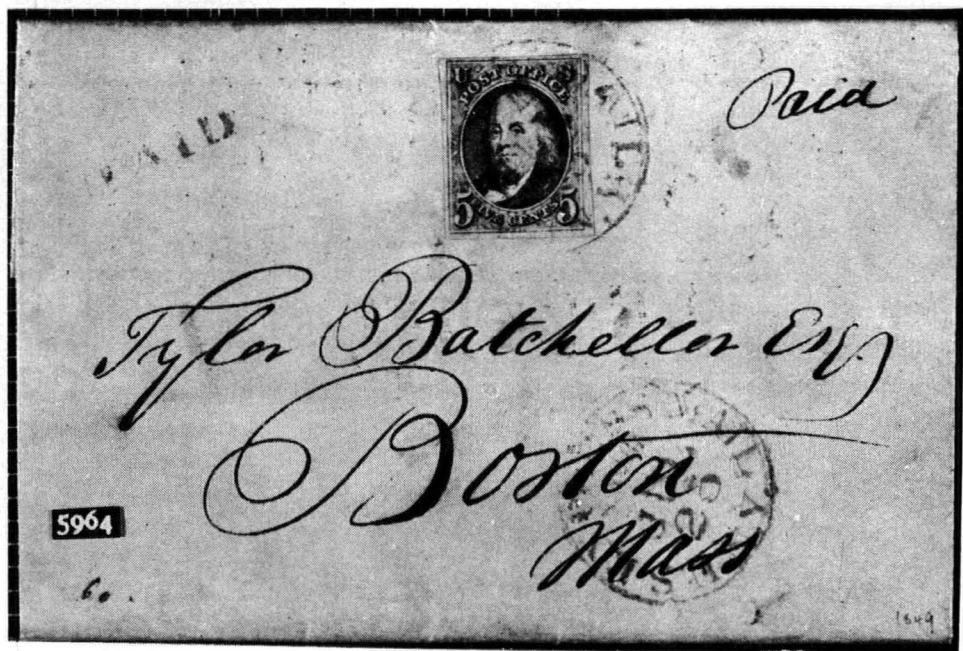 PAID
U S
POST OFFICE
5 FIVE CENTS 5
Paid
Tyler Batcheller Esq
Boston
Mass
5964
60.
1849